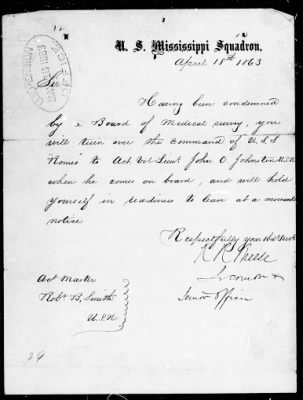 U. S. Mississippi Squadron,
April 18th 1863
Sir
Having been condemned
by a Board of Medical survey, you
will turn over the command of U.S.S
Romeo to Act Vol Lieut John O. Johnston
when he comes on board, and will hold
yourself in readiness to leave at a moments
notice
Respectfully your Obt Servt
K R Breese
Senior Officer
Act Master
Robt B. Smith
U.S.N